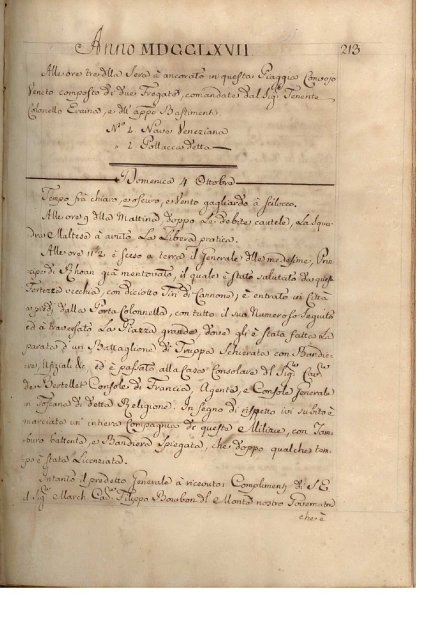 Anno MDCCLXVII 213
Alle ore tre della Sera è ancorato in questa Piaggia Convojo
Veneto composto di due Fregate, comandate dal Sig.r Tenente
Colonello Eraina, e dell' appo Bastimenti.
N.o 1. Nave Veneziana
" 1 Pollacca detta
Domenica 4 Ottobra
Tempo frà chiaro, e oscuro, e Vento gagliardo à Scilocco.
Alle ore 9 della Mattina doppo Le debite cautele, La Squa-
dra Maltese à avuto La Libera pratica.
Alle ore 11½ è sceso a terra il Generale delle medesime, Prin-
cipe di Rhoan già mentovato, il quale è stato salutato da questa
Fortezza vecchia con diciotto Tiri di Cannone, è entrato in Città
a piedi dalla Porta Colonnella, con tutto il suo Numeroso Seguito
ed à traversato La Piazza grande, dove gli è stata fatta La
Parata d'un Battaglione di Truppa Schierata con Bandie-
re, Uffiziali &c, ed è passato alla Casa Consolare del Sig.r Cav.
de Bertellet Console di Francia, Agente, e Console Generale
in Toscana di detta Religione. In segno di rispetto ivi subito è
marciata un' intiera Compagnia di queste Milizie, con Tam-
buro battente, e Bandiera Spiegata, che doppo qualche tem-
po è stata Licenziata.
Intanto il predetto Generale à ricevuto i Complimenti di S. E.
il Sig.r March. Cav. Filippo Bourbon del Monte nostro Governatre
che è